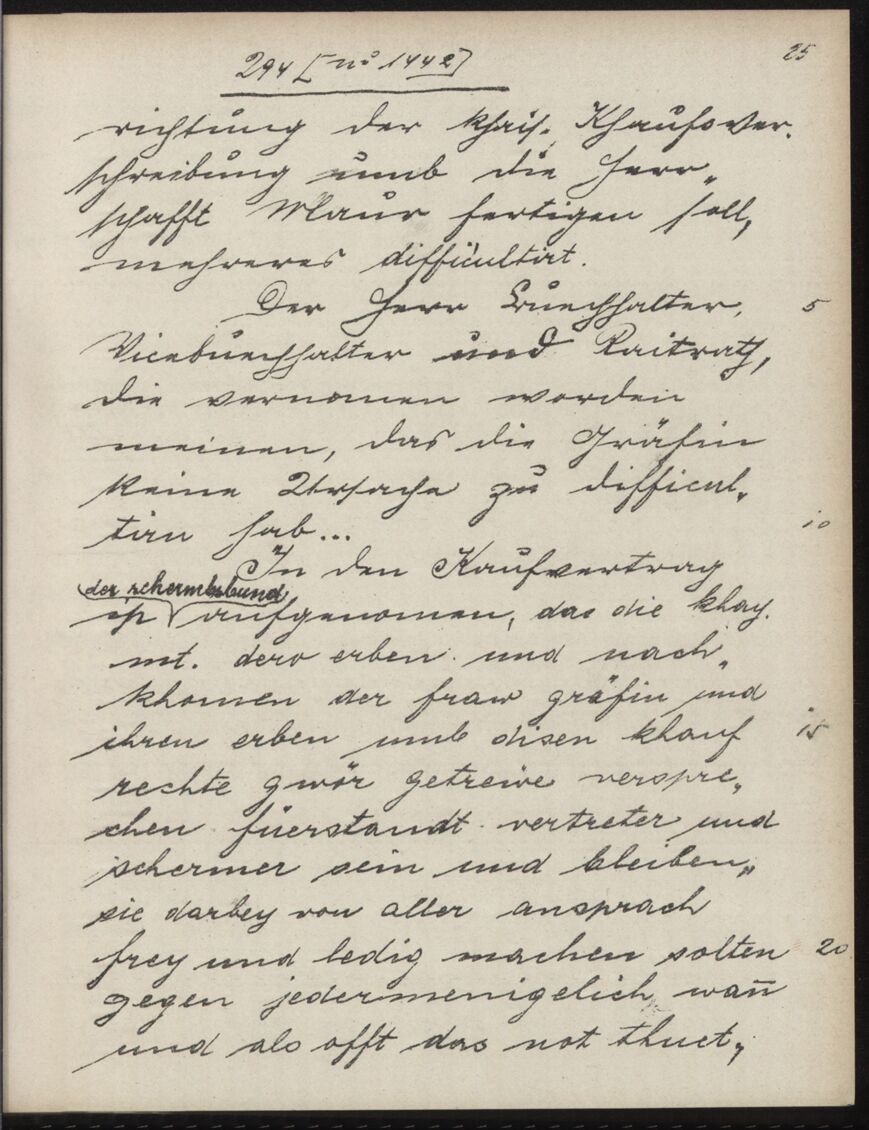 294 [no 1442]
25
richtung der khais. Khaufsver.
schreibung umb die Herr„
schafft Maur fertigen soll,
mehreres difficultirt.
Der Herr Buechhalter, 5
Vicebuechhalter und Raitrath,
die vernomen worden
meinen, das die Gräfin
keine Ursache zu difficul„
tirn hab... 10
In den Kaufvertrag
der schermbsbund
ist aufgenomen, das die khay.
mt. dero erben und nach„
khomen der fraw gräfin und
ihren erben umb disen khauf 15
rechte gwör getreiwe verspre„
chen füerstandt vertreter und
schermer sein und bleiben„
sie darbey von aller ansprach
frey und ledig machen solten 20
gegen jedermenigelich wan̅
und als offt das not thuet„